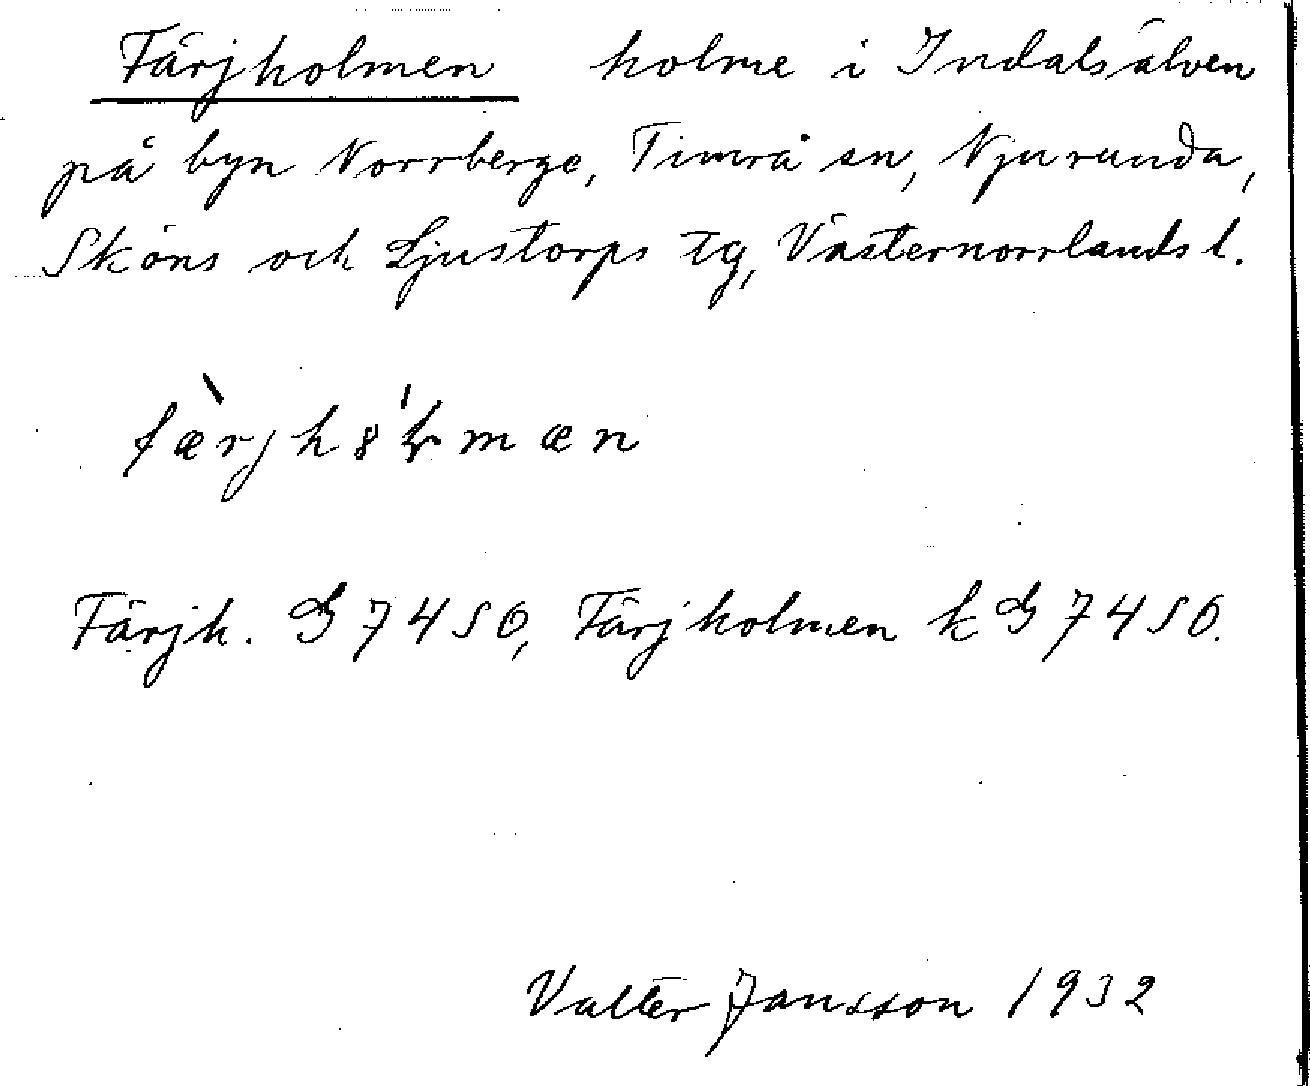 Färjholmen holme i Indalsälven
på byn Norrberge, Timrå sn, Njurunda,
Sköns och Ljustorps tg, Västernorrlands l.
Färjh. G 7450, Färjholmen k G 7450.
Valter Jansson 1932